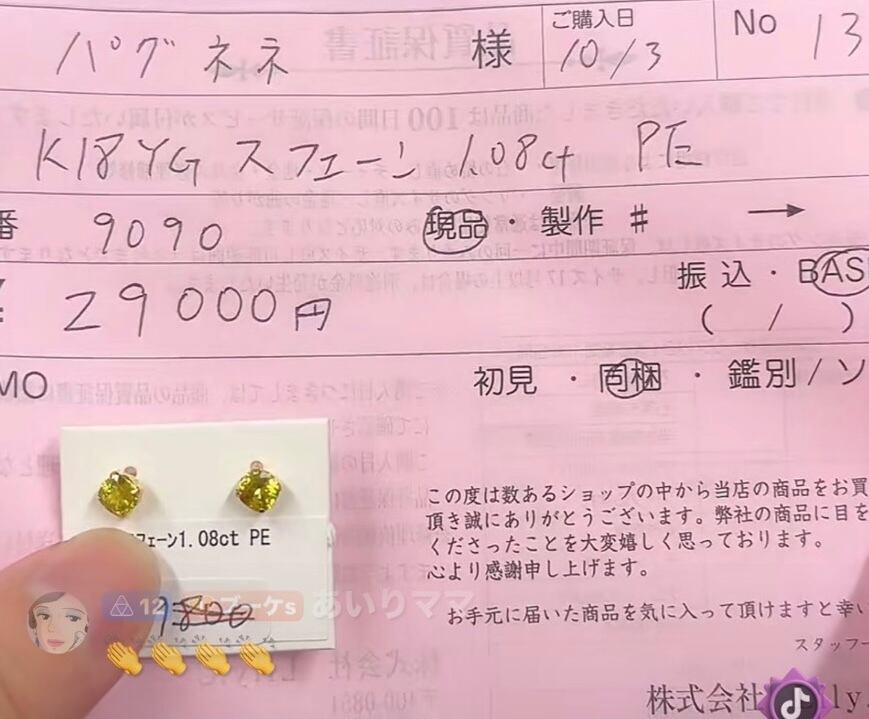 パグネネ 様 ご購入日 10/3 No 13
K18YG スフェーン 1.08ct PE
番 9090 現品・製作 # →
29000円 振込・BASE
( / )
MO 初見・同梱・鑑別/ソ
フェーン1.08ct PE
この度は数あるショップの中から当店の商品をお買
頂き誠にありがとうございます。弊社の商品に目を
くださったことを大変嬉しく思っております。
心より感謝申し上げます。
12 ブーケs あいりママ
👏👏👏👏
お手元に届いた商品を気に入って頂けますと幸い
スタッフ一
株式会社 lly.